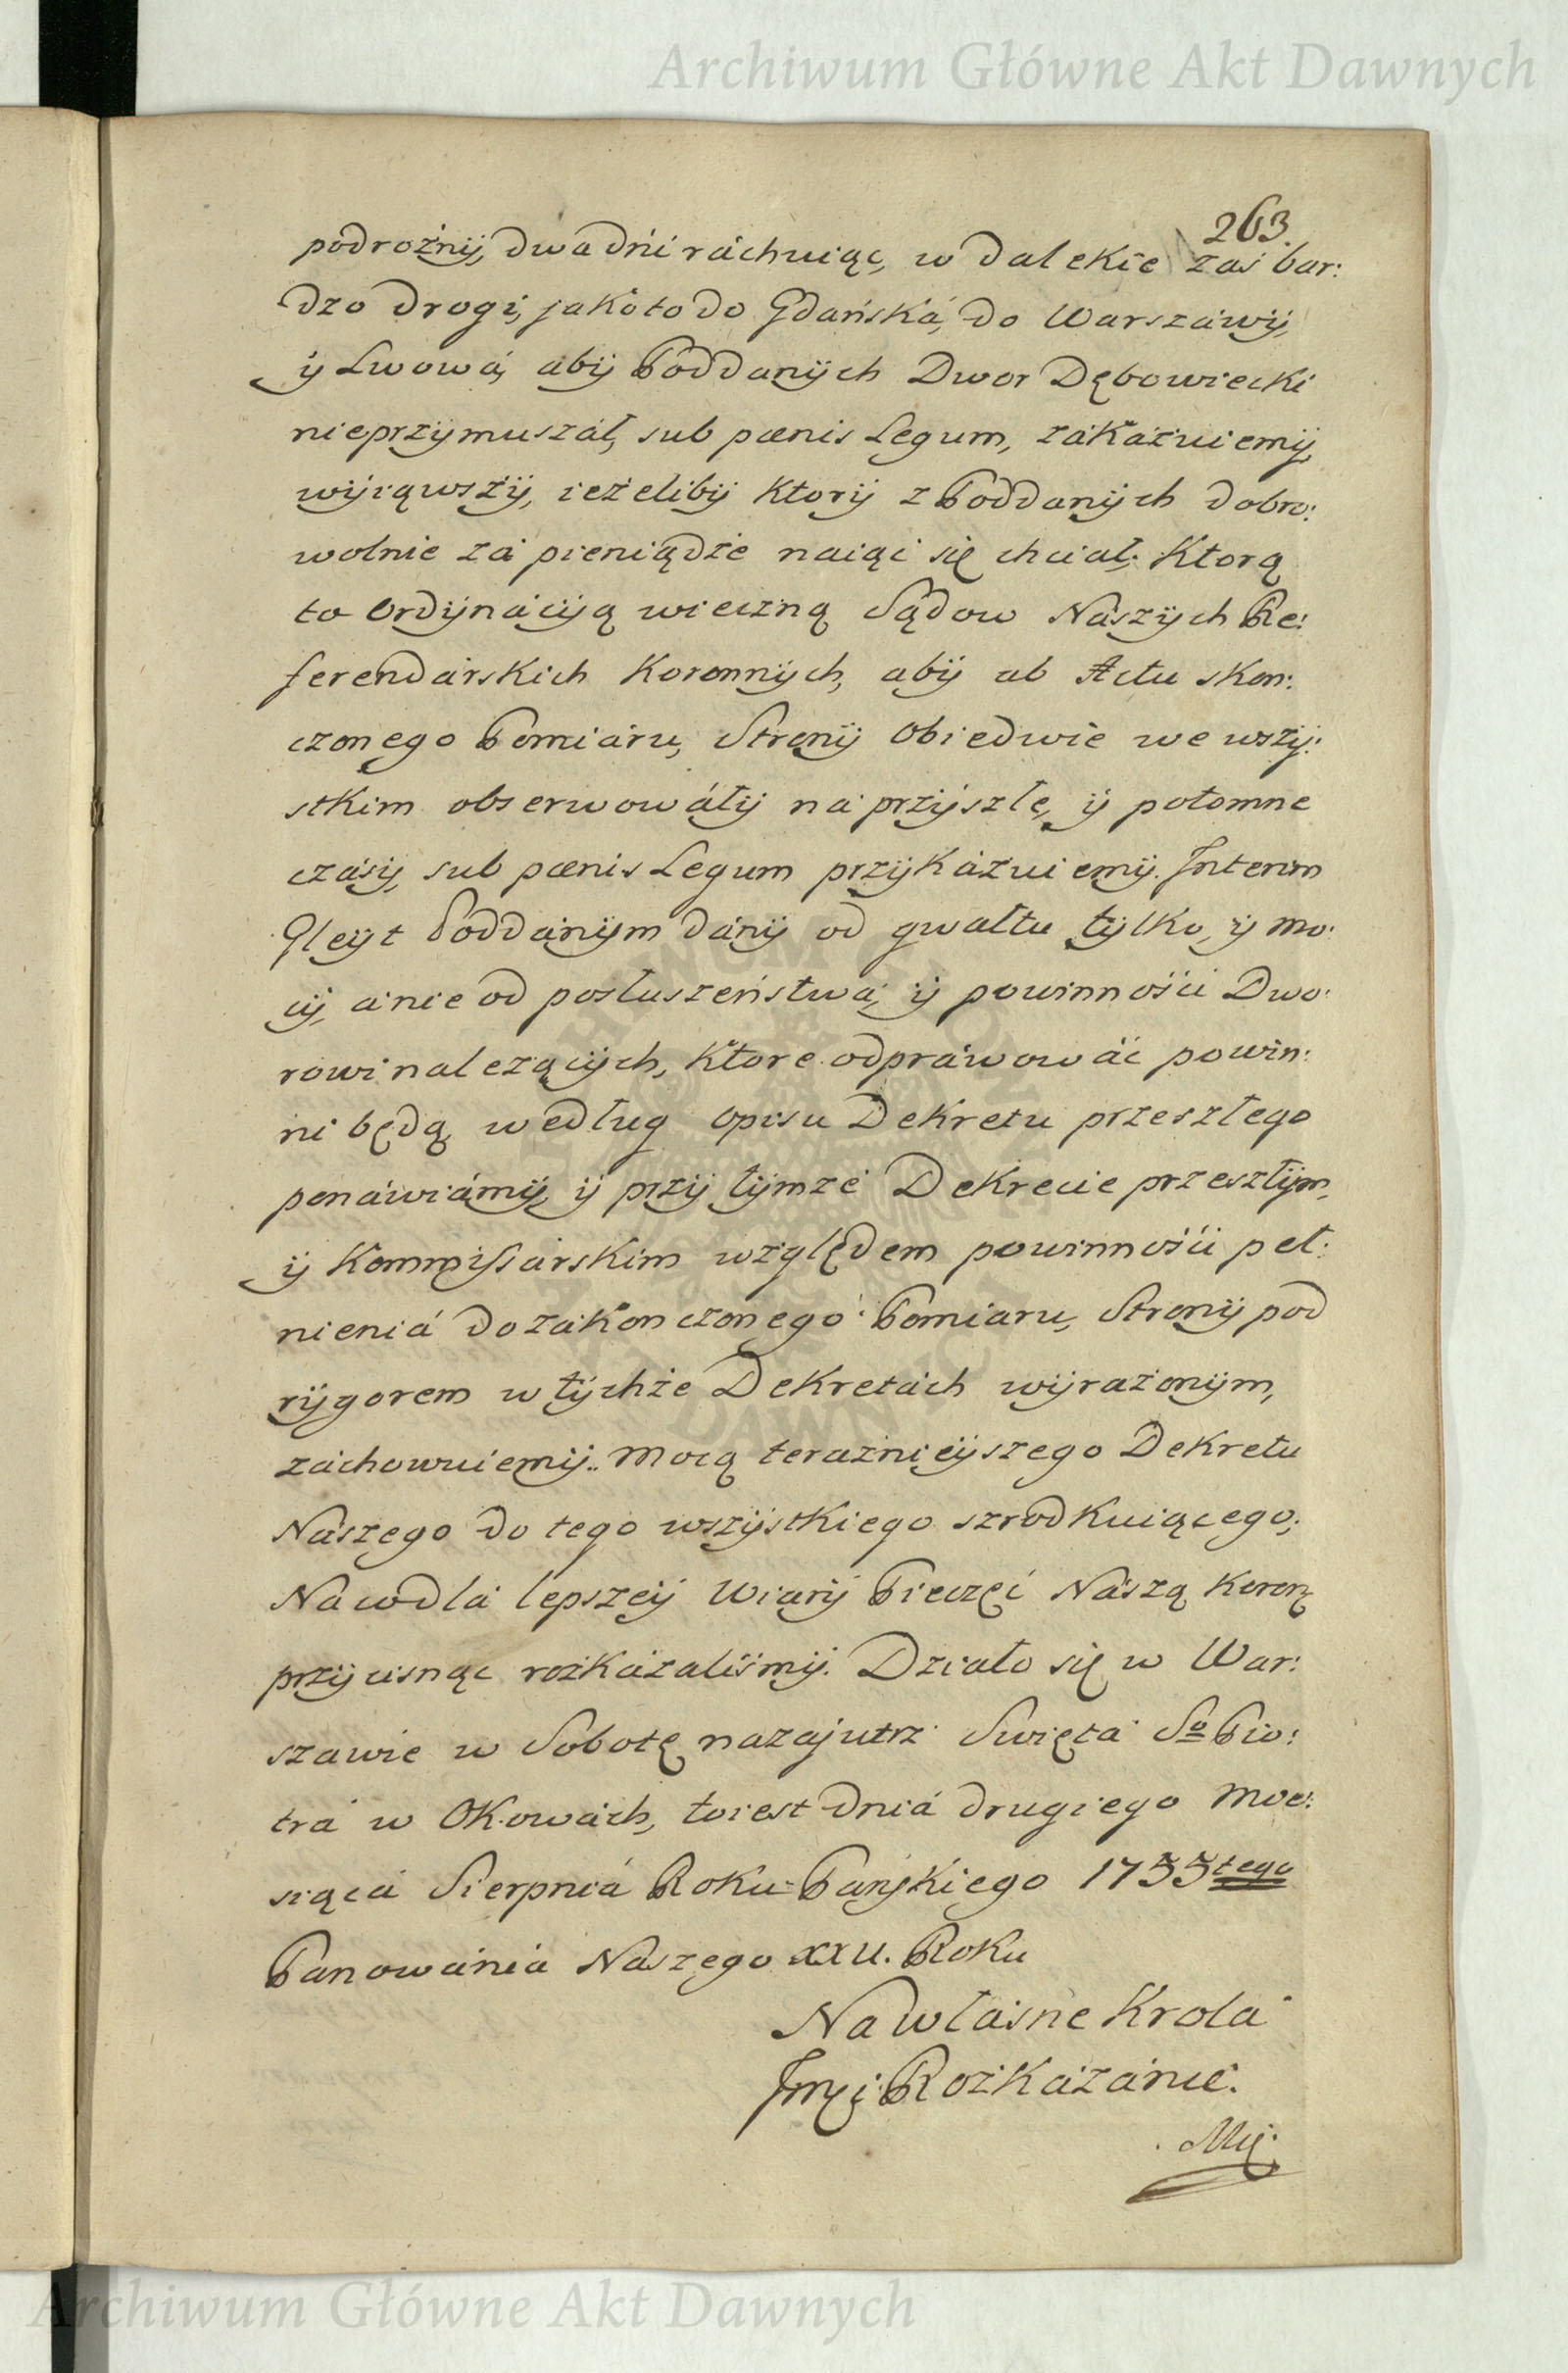 Archiwum Główne Akt Dawnych
263.
podrożnÿ, dwa dńi ráchuiąc, w dalekie zaś bar:
dzo drogi, jako to do Gdańská, do Warszáwÿ,
ÿ Lwowá, abÿ Poddanÿch Dwor Dębowiecki
nieprzÿmuszáł, sub pœnis Legum, zákázuiemÿ,
wÿiąwszÿ, ieżelibÿ ktorÿ z Poddanÿch dobro:
wolnie zá pieniądze naiąć się chciał. Ktorą
to Ordÿnácÿą wieczną Sądow Nászÿch Re:
ferendárskich Koronnÿch, abÿ ab Actu skon:
czonego Pomiáru, Stronÿ obiedwie we wszÿ:
stkim obserwowáłÿ na przÿszłe, ÿ potomne
czásÿ, sub pœnis Legum przÿkázuiemÿ. Interim
Gleÿt Poddánÿm dánÿ od gwałtu tÿlko, ÿ mo:
cÿ, á nie od posłuszeństwá, ÿ powinnośći Dwo:
rowi nalezącÿch, ktore odpráwowáć powin:
ni będą, według opisu Dekretu przeszłego
ponáwiámÿ, ÿ przÿ tÿmże Dekrecie przeszłÿm,
ÿ Kommissárskim względem powinnośći peł:
nieniá do zákonczonego Pomiaru, Stronÿ pod
rÿgorem w tÿchże Dekretách wÿrażonÿm,
záchowuiemÿ. Mocą teraźnieÿszego Dekretu
Nászego do tego wszÿstkiego szrodkuiącego;
Na co dlá lepszeÿ Wiarÿ Pieczęć Nászą Koroñ
przÿcisnąc rozkázaliśmÿ. Działo się w War:
szawie w Sobotę nazajutrz Swięta So Pio:
trá w Okowách, to iest dniá drugiego Mie:
siącá Sierpniá Roku Pańskiego 1755tego
Panowániá Naszego XXII. Roku
Na Włásne Krolá
Jmći Rozkázánie.
Mÿ.
Archiwum Główne Akt Dawnych